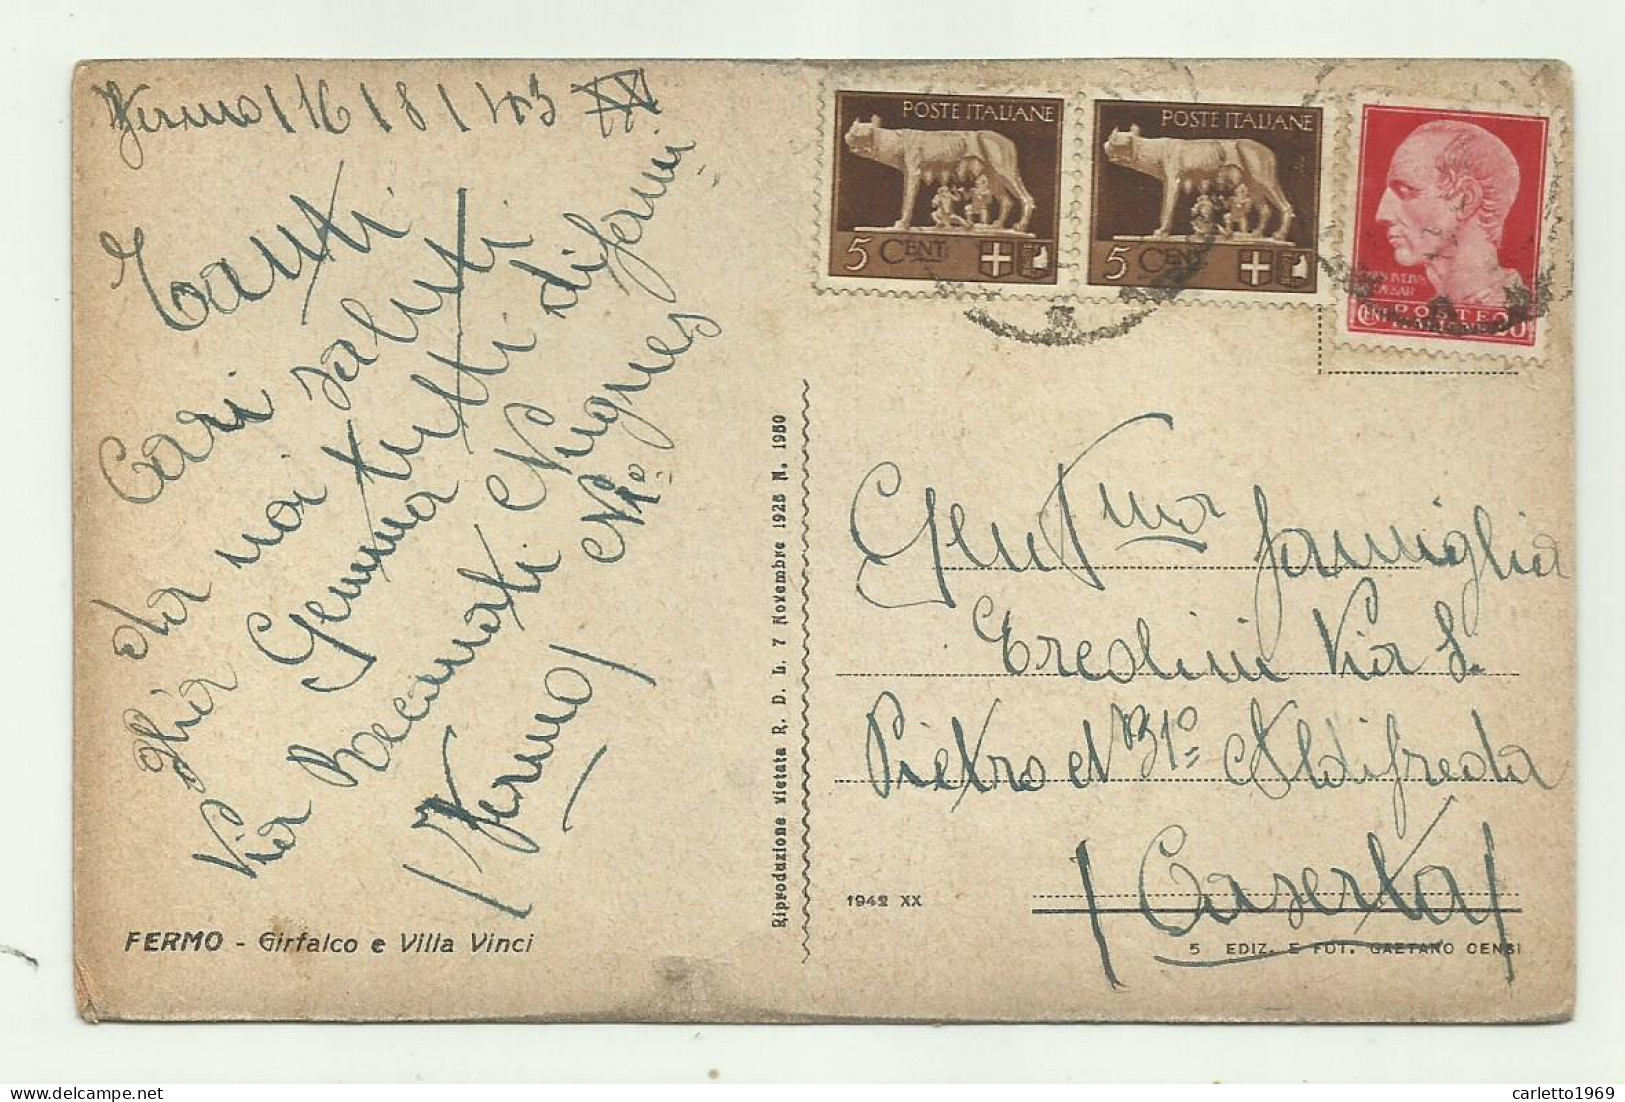 Fermo / 16 / 8 /
Tanti
Cari saluti
da noi tutti di fami
glia Gemma
Via Recanati
N 1º
/ Fermo /
FERMO - Girfalco e Villa Vinci
Riproduzione vietata R. D. L. 7 Novembre 1925 N. 1950
1942 XX
5 EDIZ. E FOT. GAETANO CENSI
POSTE ITALIANE
5 CENT.
POSTE ITALIANE
5 CENT.
IVLIVS
CAESAR
POSTE
CENT
20
ITALIANE
Gent.ma famiglia
Ercolini Via S.
Pietro N 31º Aldifreda
/ Caserta /
delcampe.net
carletto1969